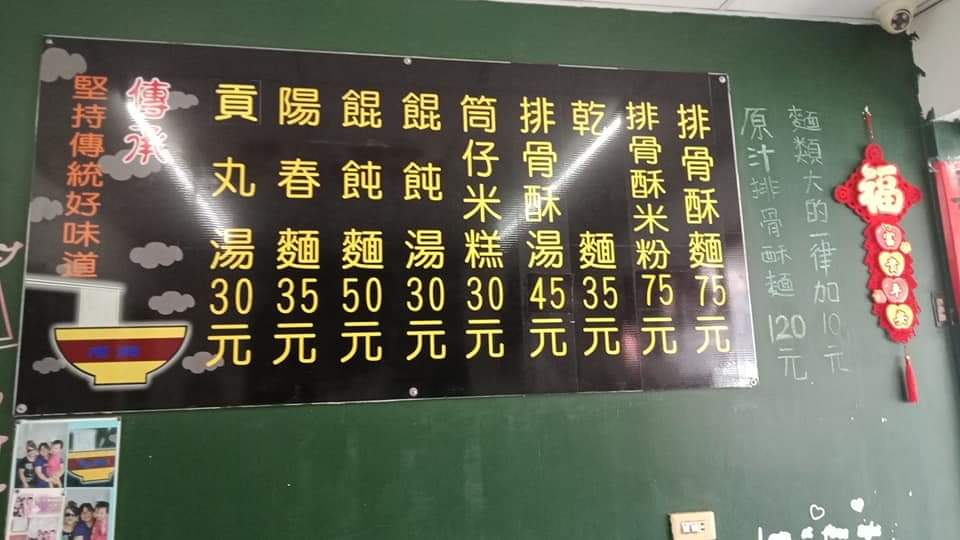 麵類大的一律加10元
原汁排骨酥麵 120元
排骨酥麵75元
排骨酥米粉75元
乾麵35元
排骨酥湯45元
筒仔米糕30元
餛飩湯30元
餛飩麵50元
陽春麵35元
貢丸湯30元
傳承
堅持傳統好味道
福